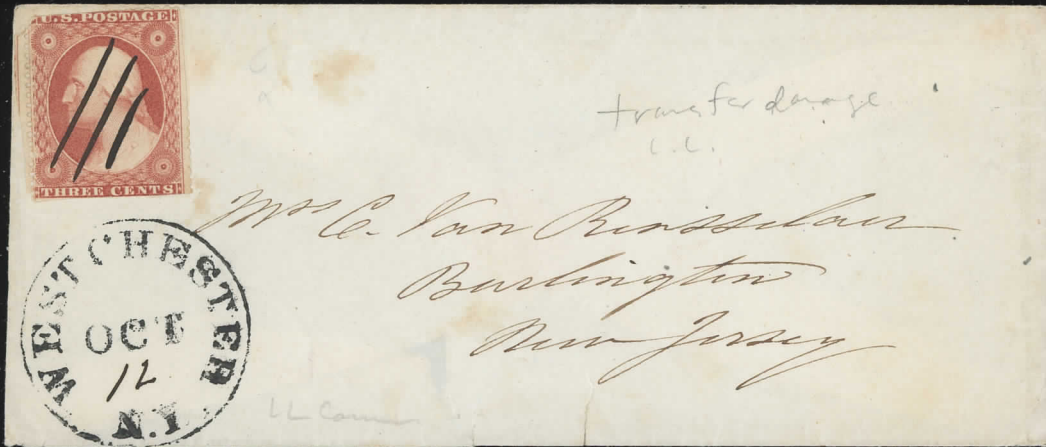 U.S. POSTAGE
THREE CENTS
transfer damage
L.L.
Mrs C. Van Rensselaer
Burlington
New Jersey
WEST CHESTER
OCT
12
N.Y